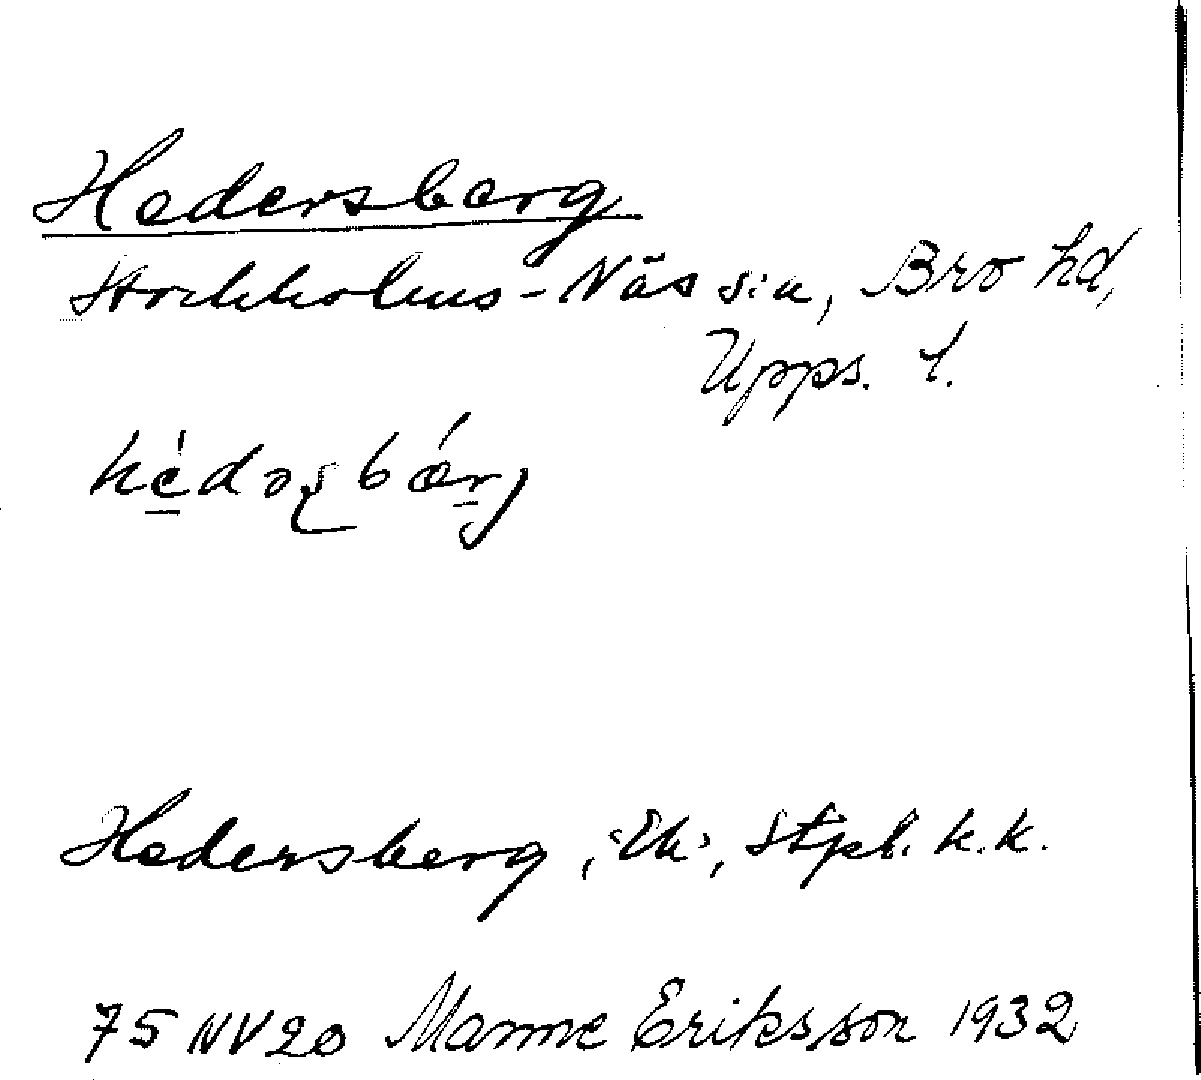 Hedersberg
Stockholms-Näs sn, Bro hd,
Upps. l.
Hedersberg, Stpl. k.k.
75 NV20 Manne Eriksson 1932